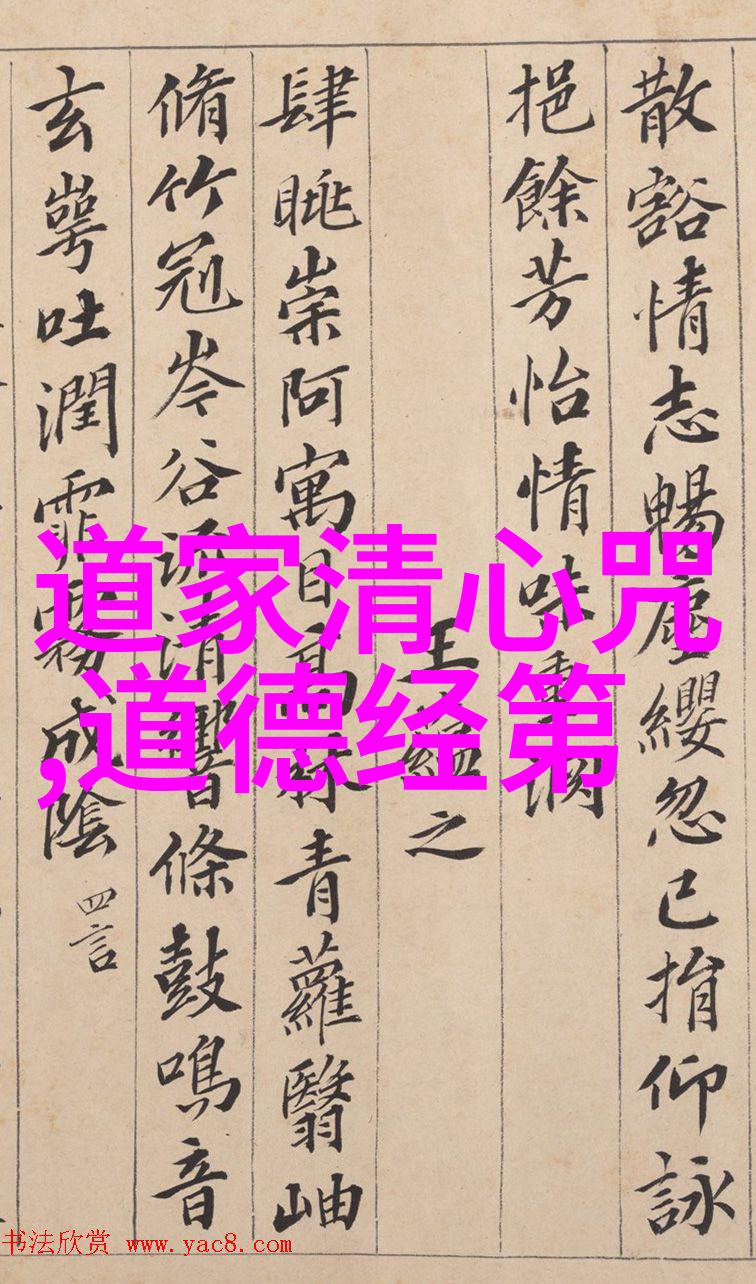 散豁情志暢塵纓忽已捐仰詠
挹餘芳怡情味重淵
王蘊之
肆眺崇阿寓目高林青蘿翳岫
脩竹冠岑谷流清響條鼓鳴音
玄崿吐潤霏霧成陰 四言
道家清心咒
,道德经第
书法欣赏 www.yac8.com